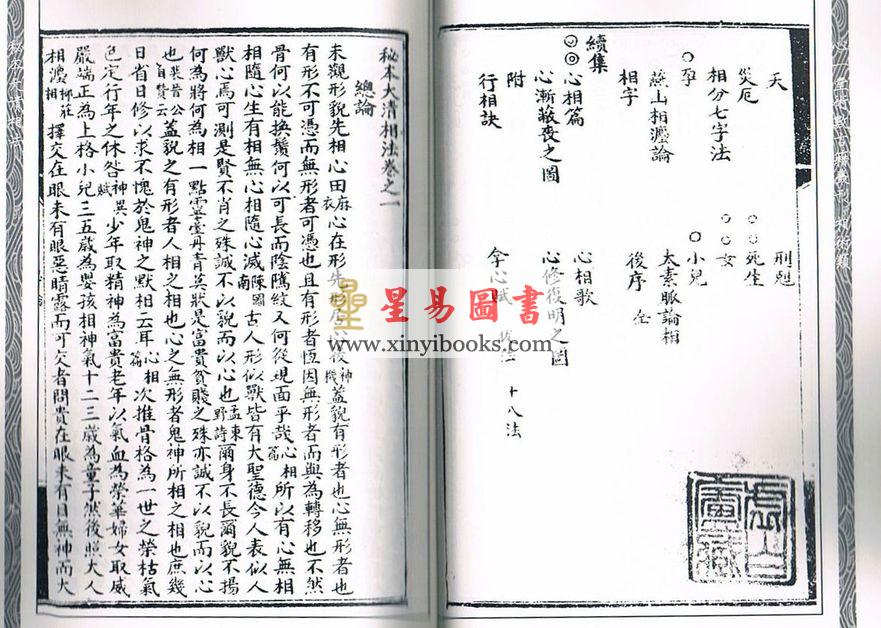 刑剋
災厄　死生
相分七字法　女
孕　小兒
燕山相灋論　太素脈論相
相字　後序
續集
心相篇　心相歌
心漸蔽喪之圖　心修復明之圖
附　十八法
行相訣
秘本大清相法卷之一
總論
未觀形貌先相心田麻衣心在形先形居心後神機蓋貌有形者也心無形者也
有形不可憑而無形者可憑也且有形者恆因無形者而與為轉移也不然
骨何以能換鬚何以可長而陰隲紋又何從現面乎哉心相篇所以有心無相
相隨心生有相無心相隨心滅陳圖南古人形似獸皆有大聖德今人表似人
獸心焉可測是賢不肖之殊誠不以貌而以心也孟東野詩爾身不長爾貌不揚
何為將何為相一點靈臺丹青莫狀是富貴貧賤之殊亦誠不以貌而以心
也裴晉公自贊云蓋貌之有形者人相之相也心之無形者鬼神所相之相也庶幾
日省日修以求不愧於鬼神之默相云耳心相篇次推骨格為一世之榮枯氣
色定行年之休咎神異賦少年取精神為富貴老年以氣血為榮華婦女取威
嚴端正為上格小兒三五歲為嬰孩相神氣十二三歲為童子然後照大人
相灋柳莊相擇交在眼未有眼惡睛露而可交者問貴在眼未有目無神而大
星易圖書
www.xinyibooks.com